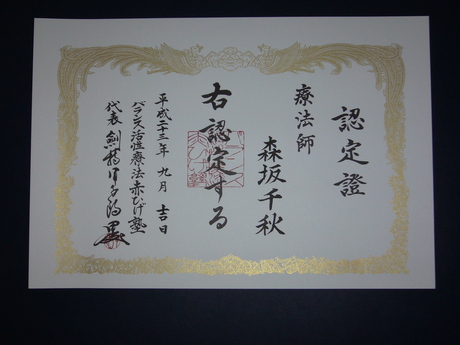 認定證
療法師
森坂千秋
右認定する
平成二十三年 九月 吉日
バランス活性療法赤ひげ塾
代表